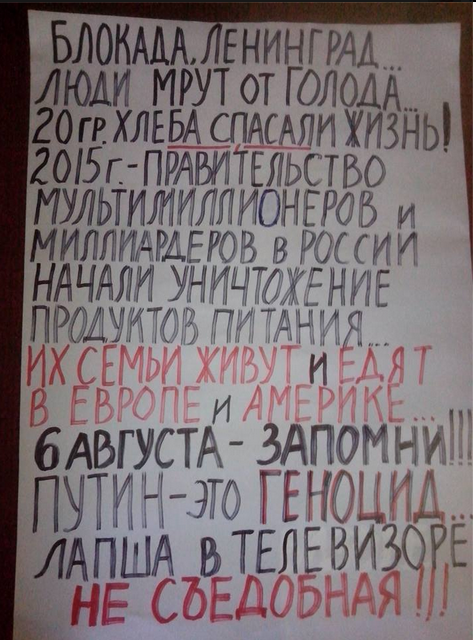 БЛОКАДА, ЛЕНИНГРАД...
ЛЮДИ МРУТ ОТ ГОЛОДА...
20 ГР. ХЛЕБА СПАСАЛИ ЖИЗНЬ!
2015 г. - ПРАВИТЕЛЬСТВО
МУЛЬТИМИЛЛИОНЕРОВ и
МИЛЛИАРДЕРОВ в РОССИИ
НАЧАЛИ УНИЧТОЖЕНИЕ
ПРОДУКТОВ ПИТАНИЯ...
ИХ СЕМЬИ ЖИВУТ и ЕДЯТ
В ЕВРОПЕ и АМЕРИКЕ...
6 АВГУСТА - ЗАПОМНИ!!!
ПУТИН-ЭТО ГЕНОЦИД...
ЛАПША В ТЕЛЕВИЗОРЕ
НЕ СЪЕДОБНАЯ!!!